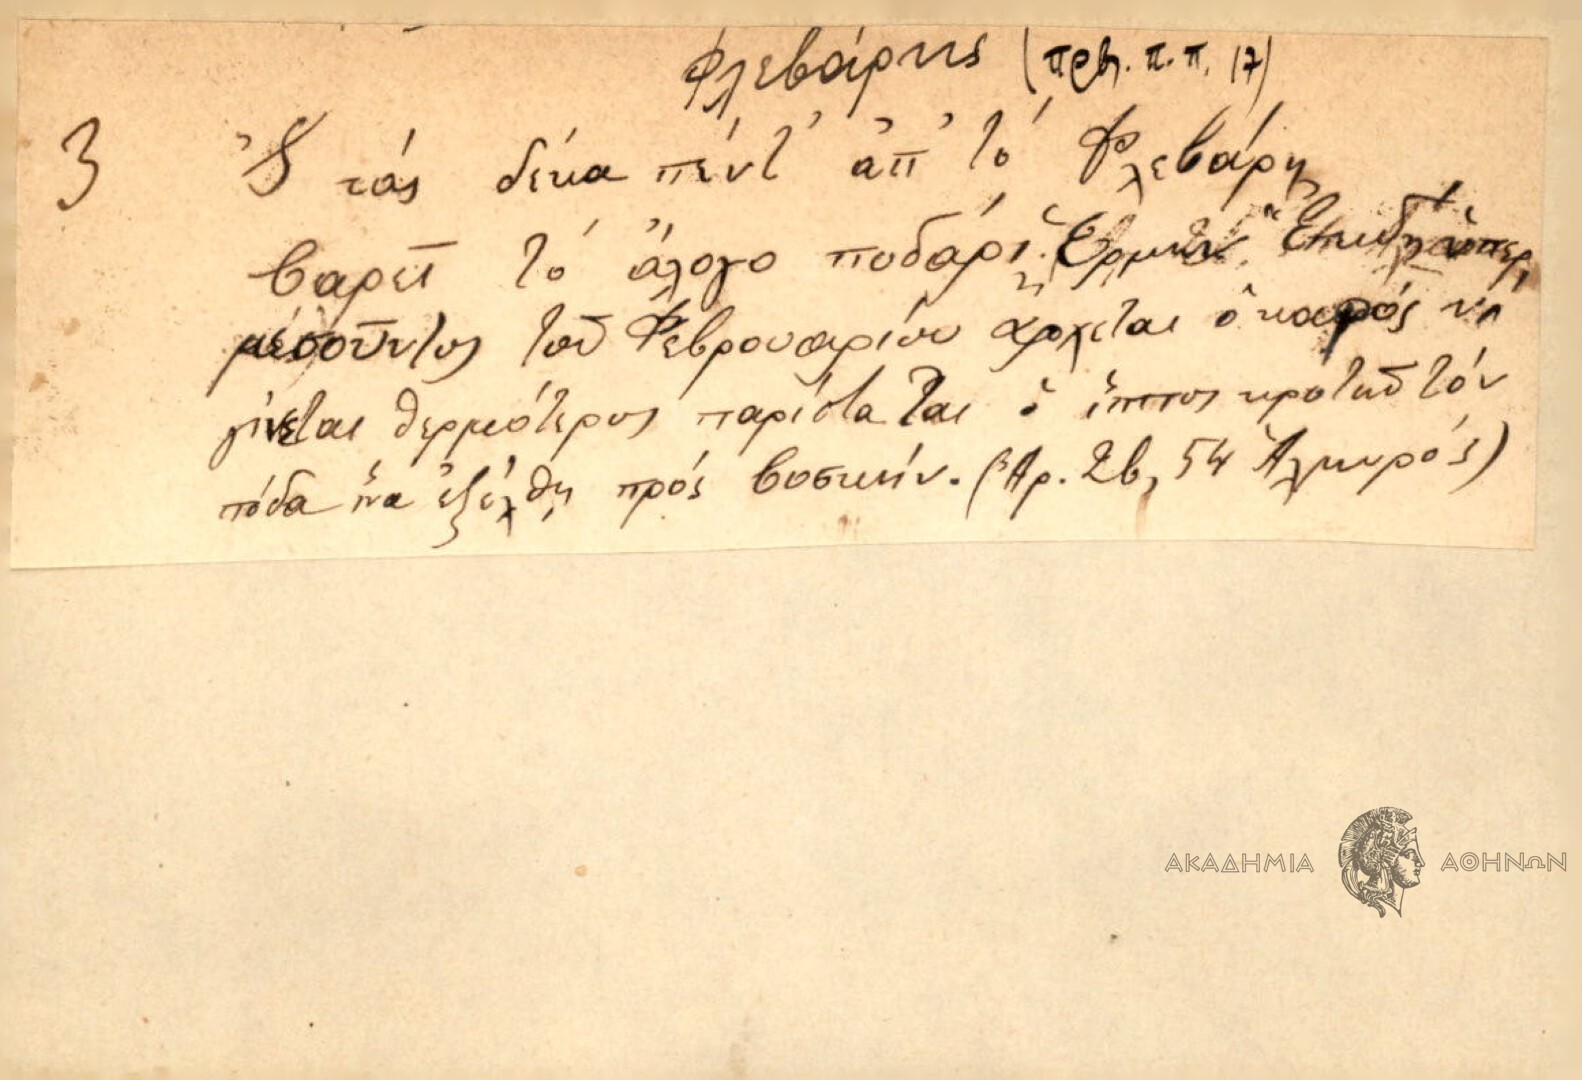 Φλεβάρης (πρβ. π. π. 17)
3 'Σ τάς δέκα πέντ' ἀπ' τό Φλεβάρη
βαρεῖ τό ἄλογο ποδάρι. Ἑρμην. Ἐπειδή ὑπερ
μεσοῦντος τοῦ Φεβρουαρίου ἄρχεται ὁ καιρός νά
γίνεται θερμότερος παρίσταται ὁ ἵππος κροτῶν τόν
πόδα ἵνα ἐξέλθῃ πρός βοσκήν. (Ἀρ. 2β, 54 Ἁλμυρός)
ΑΚΑΔΗΜΙΑ ΑΘΗΝΩΝ